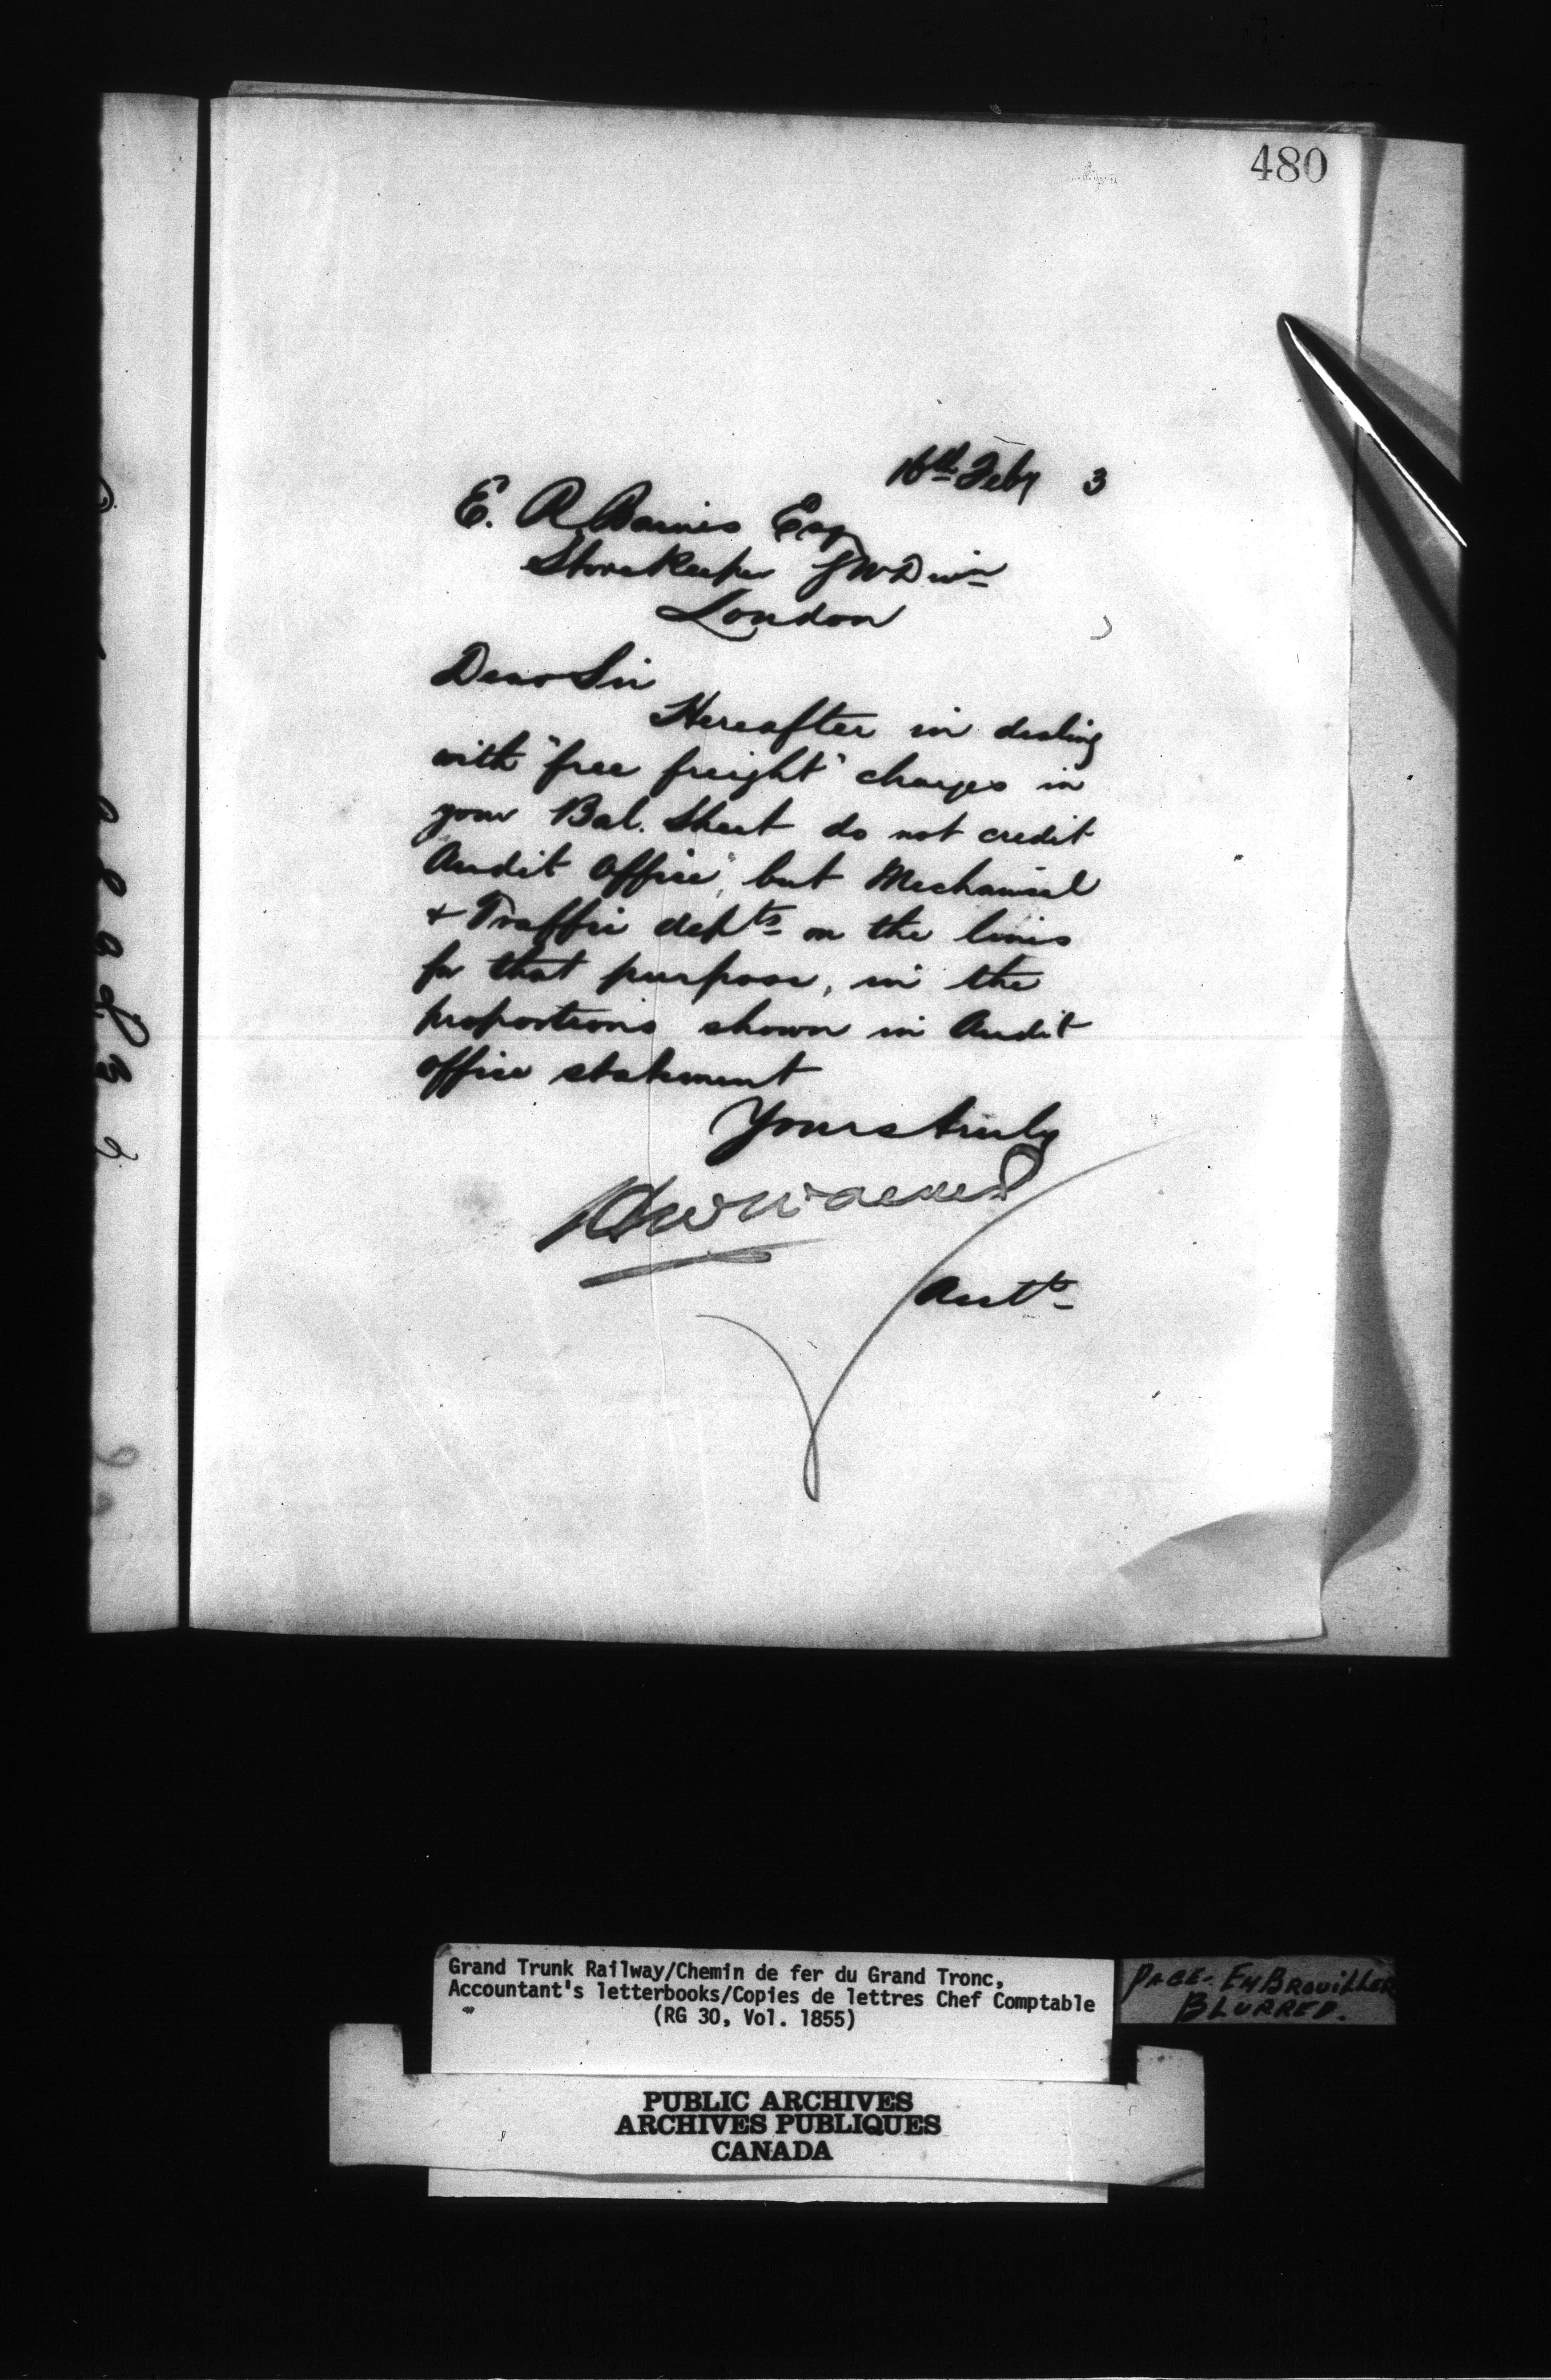 480
16th Feby 3
E. R. Barnes Esq
Storekeeper GWDivn
London
Dear Sir
Hereafter in dealing
with "free freight" charges in
your Bal. Sheet do not credit
"Audit Office", but Mechanical
& Traffic depts on the lines
for that purpose, in the
proportions shown in Audit
office statement
Yours truly
Actt
Grand Trunk Railway/Chemin de fer du Grand Tronc,
Accountant's letterbooks/Copies de lettres Chef Comptable
(RG 30, Vol. 1855)
PAGE- EMBROUILLER
BLURRED.
PUBLIC ARCHIVES
ARCHIVES PUBLIQUES
CANADA